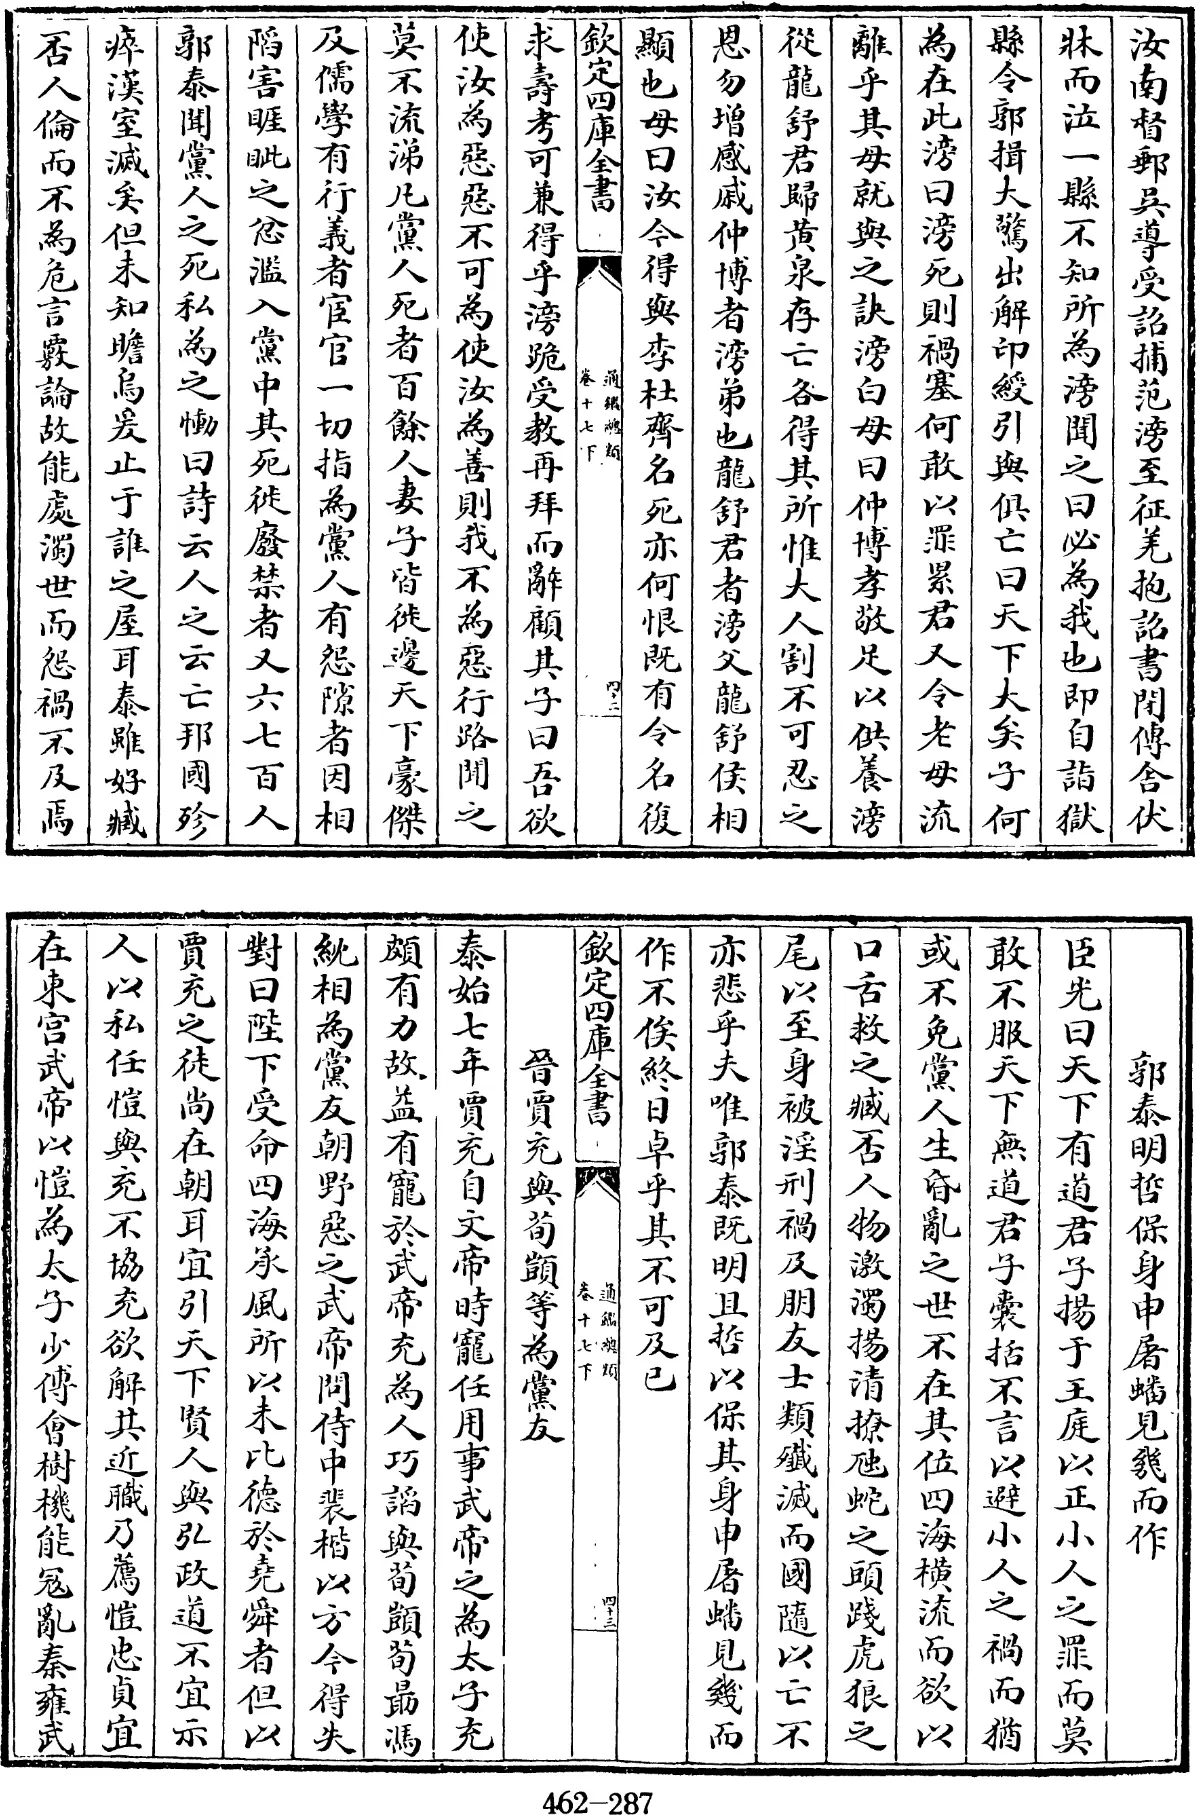 汝南督郵吳導受詔捕范滂至征羌抱詔書閉傳舍伏
牀而泣一縣不知所為滂聞之曰必為我也即自詣獄
縣令郭揖大驚出解印綬引與俱亡曰天下大矣子何
為在此滂曰滂死則禍塞何敢以罪累君又令老母流
離乎其母就與之訣滂白母曰仲博孝敬足以供養滂
從龍舒君歸黃泉存亡各得其所惟大人割不可忍之
恩勿增感戚仲博者滂弟也龍舒君者滂父龍舒侯相
顯也母曰汝今得與李杜齊名死亦何恨既有令名復
欽定四庫全書
通鑑總類
卷十七下
四十二
求壽考可兼得乎滂跪受教再拜而辭顧其子曰吾欲
使汝為惡惡不可為使汝為善則我不為惡行路聞之
莫不流涕凡黨人死者百餘人妻子皆徙邊天下豪傑
及儒學有行義者宦官一切指為黨人有怨隙者因相
陷害睚眦之忿濫入黨中其死徙廢禁者又六七百人
郭泰聞黨人之死私為之慟曰詩云人之云亡邦國殄
瘁漢室滅矣但未知瞻烏爰止于誰之屋耳泰雖好臧
否人倫而不為危言覈論故能處濁世而怨禍不及焉
郭泰明哲保身申屠蟠見幾而作
臣光曰天下有道君子揚于王庭以正小人之罪而莫
敢不服天下無道君子囊括不言以避小人之禍而猶
或不免黨人生昏亂之世不在其位四海橫流而欲以
口舌救之臧否人物激濁揚清撩虺蛇之頭踐虎狼之
尾以至身被淫刑禍及朋友士類殲滅而國隨以亡不
亦悲乎夫唯郭泰既明且哲以保其身申屠蟠見幾而
作不俟終日卓乎其不可及已
欽定四庫全書
通鑑總類
卷十七下
四十三
晉賈充與荀顗等為黨友
泰始七年賈充自文帝時寵任用事武帝之為太子充
頗有力故益有寵於武帝充為人巧諂與荀顗荀勗馮
紞相為黨友朝野惡之武帝問侍中裴楷以方今得失
對曰陛下受命四海承風所以未比德於堯舜者但以
賈充之徒尚在朝耳宜引天下賢人與弘政道不宜示
人以私任愷與充不協充欲解其近職乃薦愷忠貞宜
在東宮武帝以愷為太子少傅會樹機能寇亂秦雍武
462-287